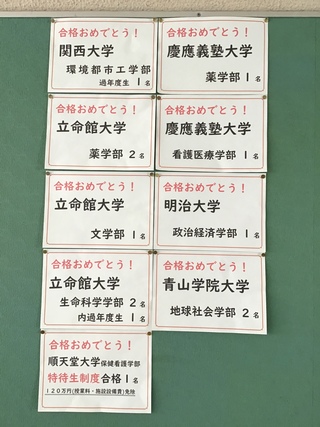 合格おめでとう！
関西大学
環境都市工学部
過年度生 1名
合格おめでとう！
慶應義塾大学
薬学部 1名
合格おめでとう！
立命館大学
薬学部 2名
合格おめでとう！
慶應義塾大学
看護医療学部 1名
合格おめでとう！
立命館大学
文学部 1名
合格おめでとう！
明治大学
政治経済学部 1名
合格おめでとう！
立命館大学
生命科学学部 2名
内過年度生 1名
合格おめでとう！
青山学院大学
地球社会学部 2名
合格おめでとう！
順天堂大学保健看護学部
特待生制度合格1名
120万円(授業料・施設設備費)免除